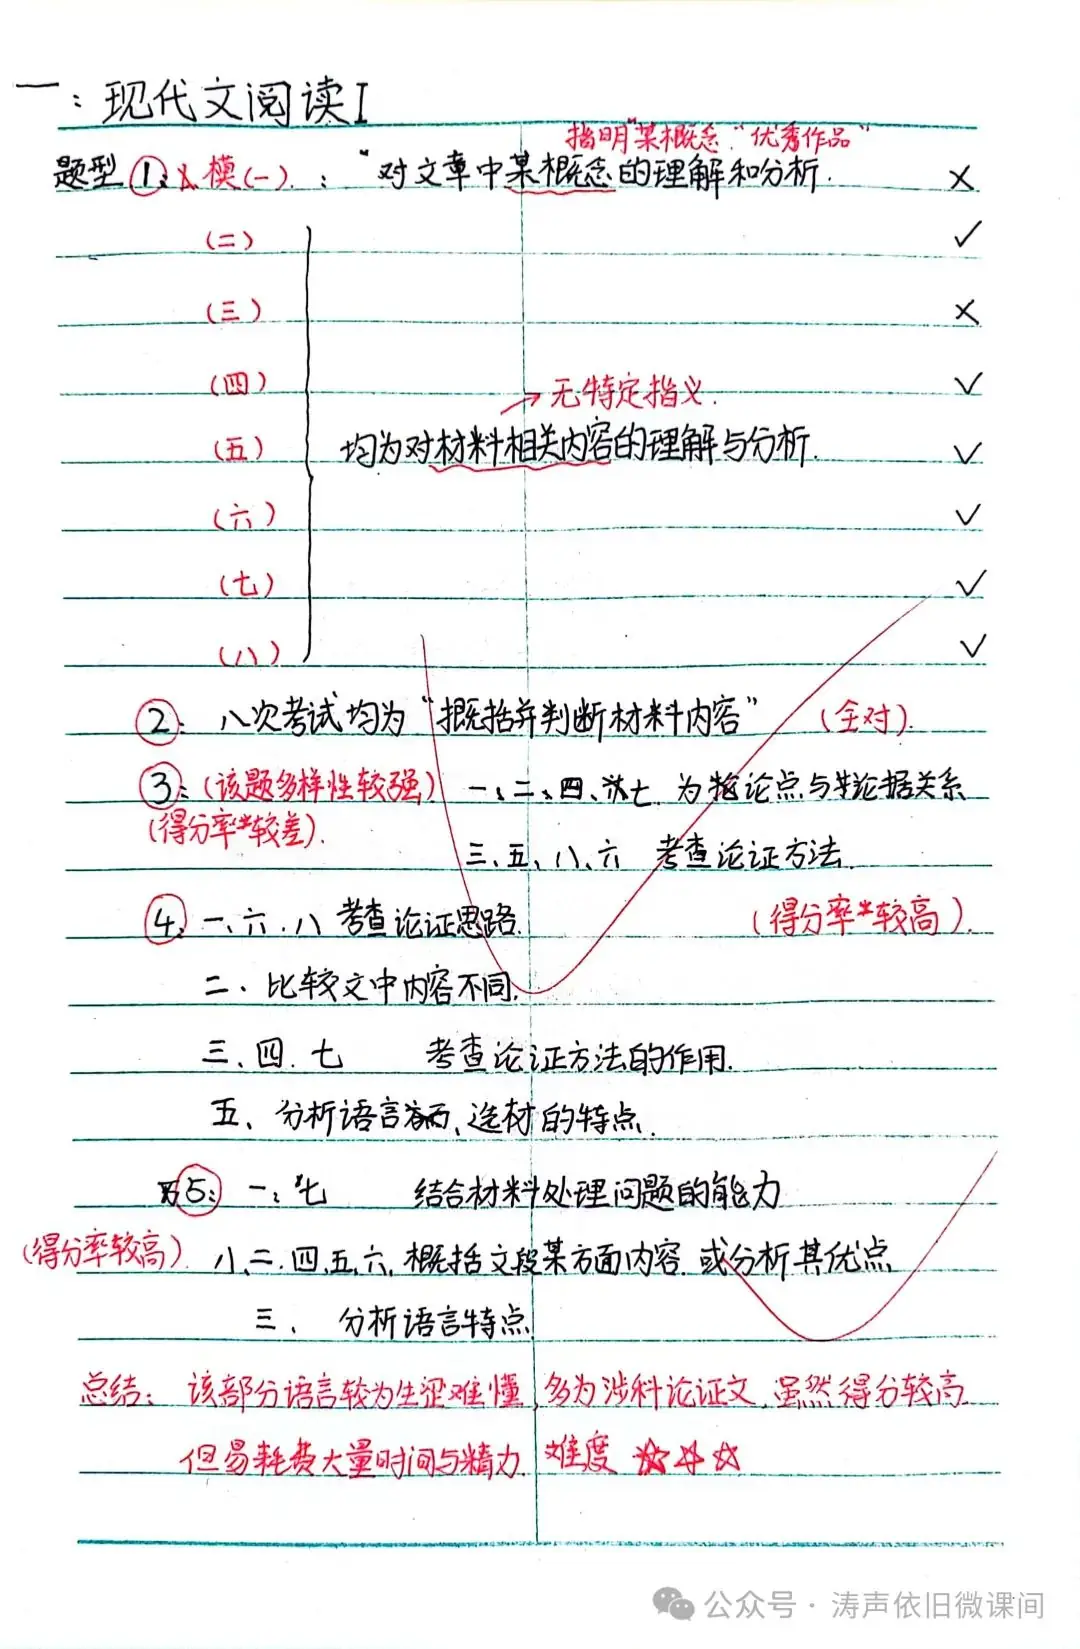 一：现代文阅读I
指明"某概念"优秀作品"
题型①：模(一)：“对文章中某概念的理解和分析. ×
(二) ✓
(三) ×
(四) ✓
→无特定指义.
(五) 均为对材料相关内容的理解与分析. ✓
(六) ✓
(七) ✓
(八) ✓
②：八次考试均为“概括并判断材料内容” (全对).
③：(该题多样性较强) 一、二、四、七 为论点与论据关系
(得分率较差). 三、五、八、六 考查论证方法.
④：一、六.八 考查论证思路. (得分率较高).
二、比较文中内容不同.
三、四.七 考查论证方法的作用.
五、分析语言、选材的特点.
⑤：一：七 结合材料处理问题的能力
(得分率较高) 八、二.四、五、六、概括文段某方面内容.或分析其优点
三、 分析语言特点
总结：该部分语言较为生涩难懂,多为涉科论证文.虽然得分较高.
但易耗费大量时间与精力.难度☆☆☆
公众号·涛声依旧微课间